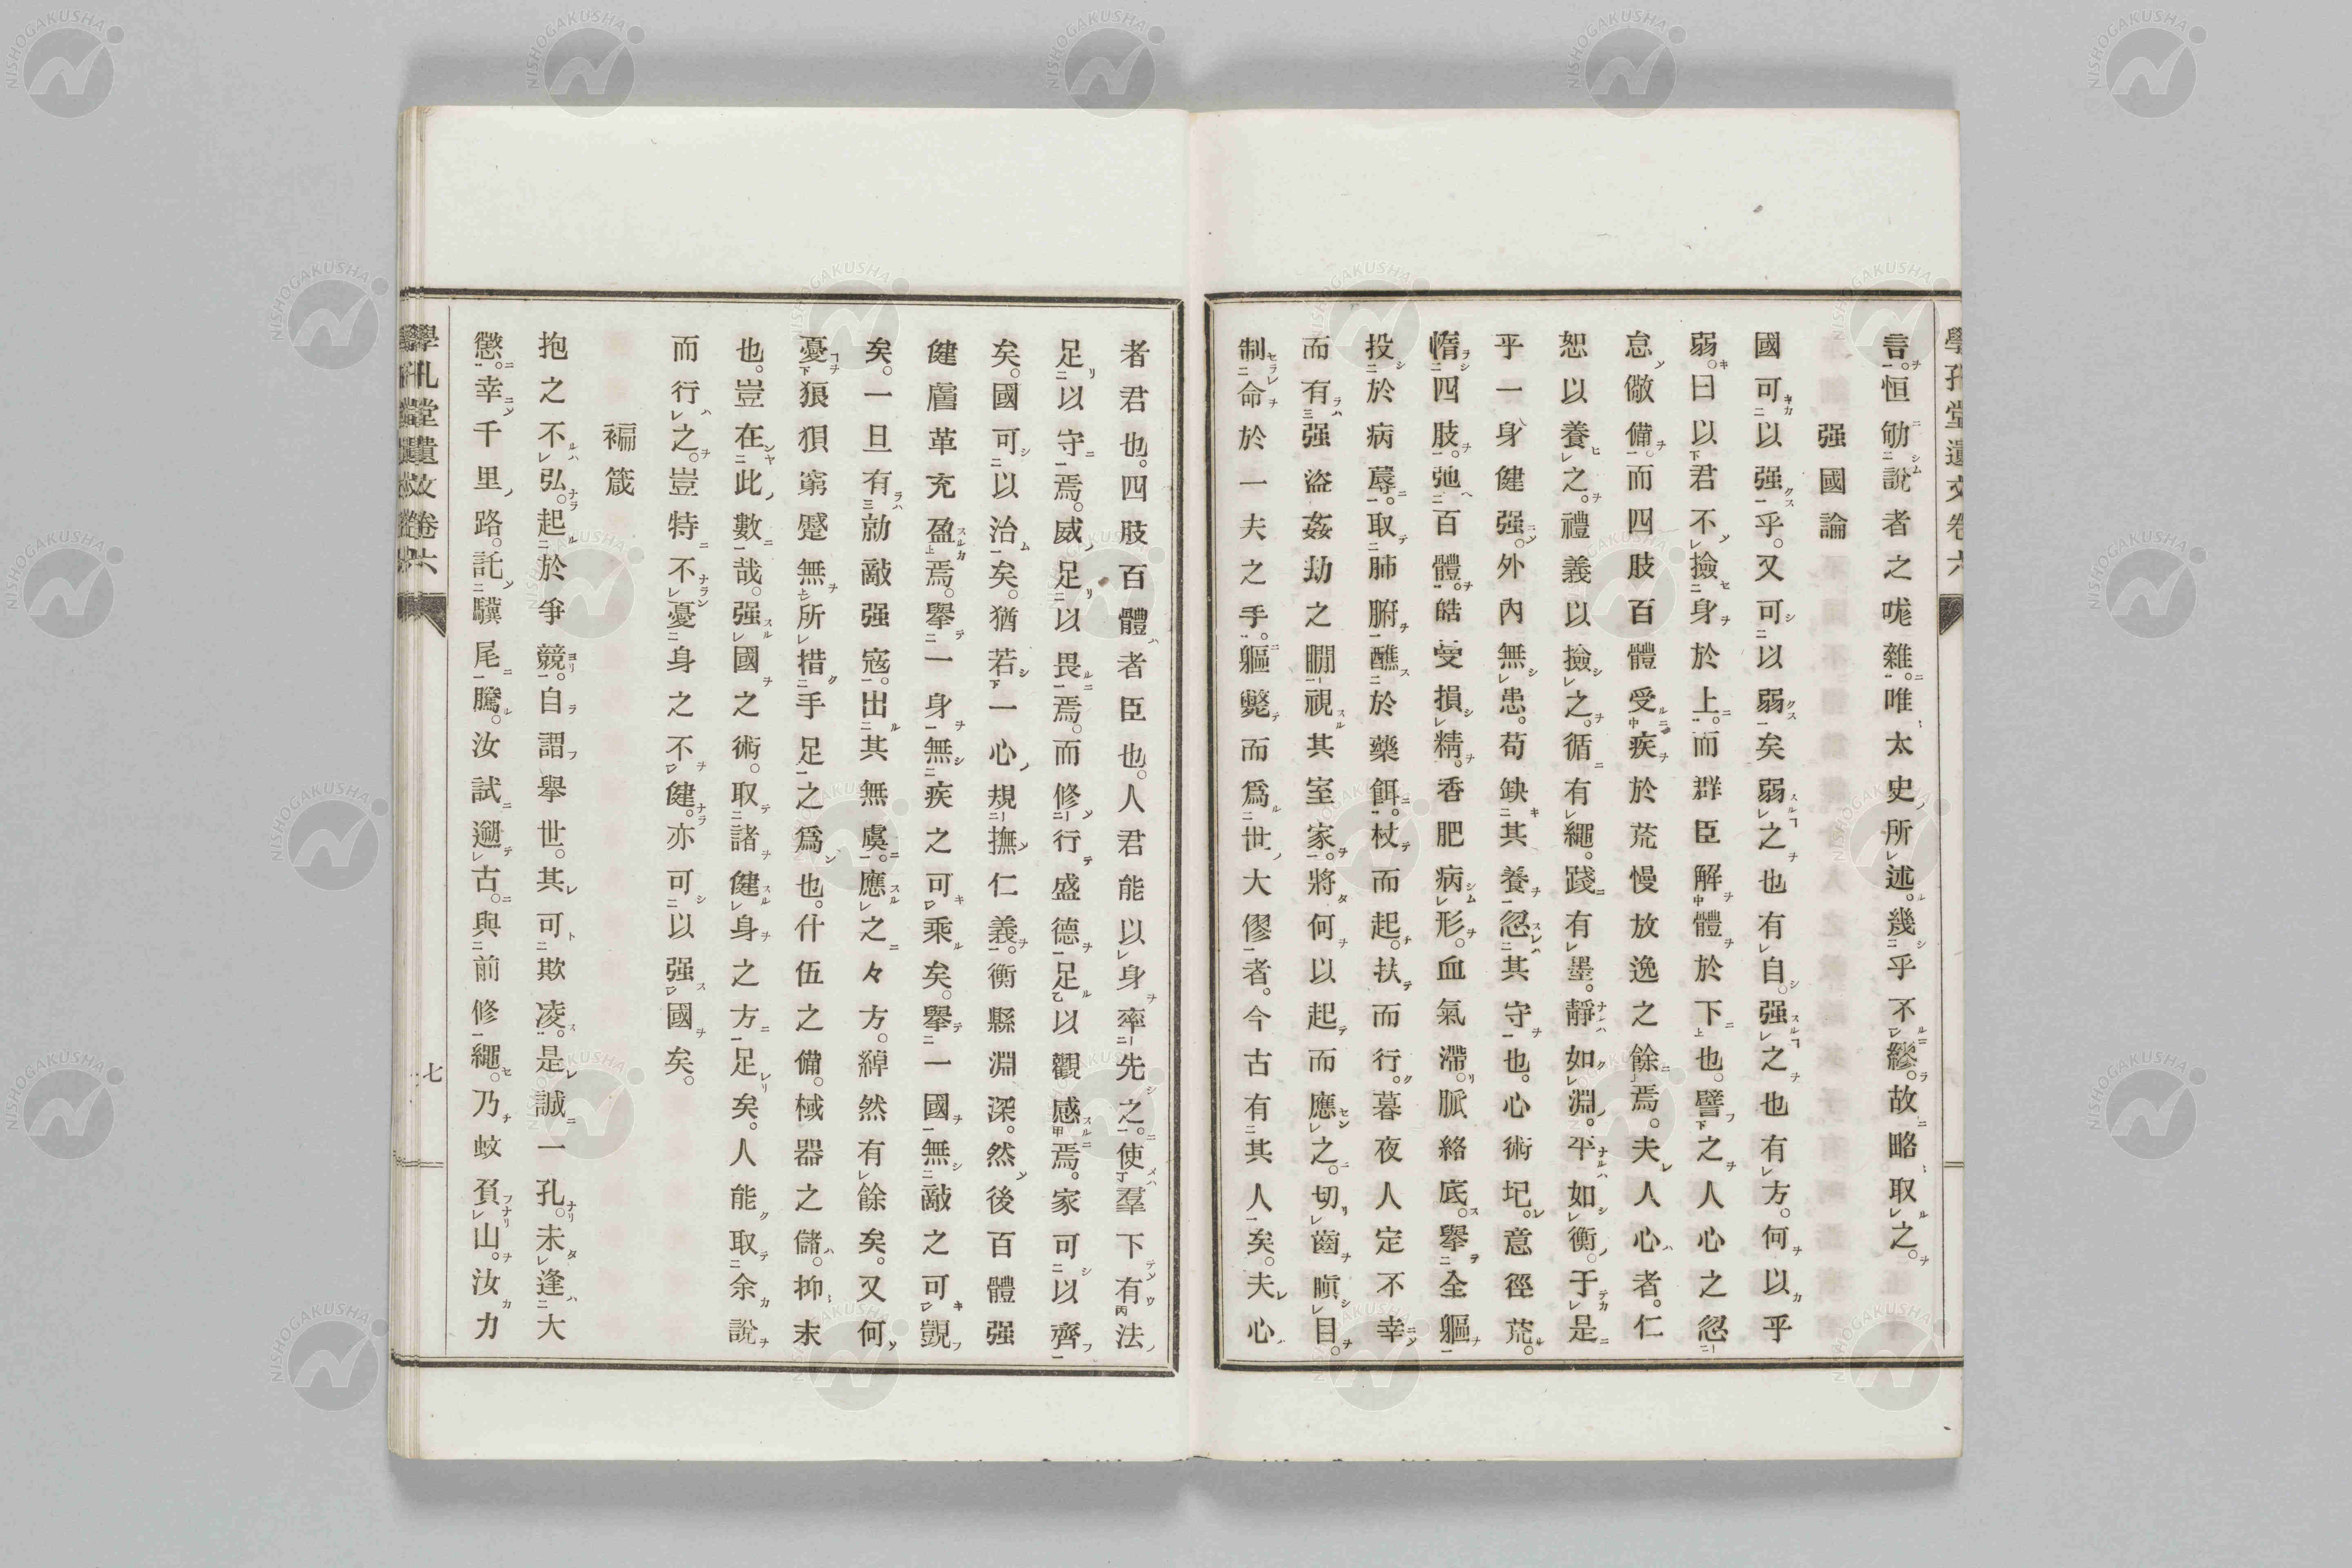 學孔堂遺文卷六
言。恒勉說者之哤雜。唯太史所述。幾乎不繆。故略取之。
强國論
國可以强乎。又可以弱矣弱之也有自。强之也有方。何以乎
弱。曰以君不撿身於上。而群臣解體於下也。譬之人心之忽
怠儆備。而四肢百體受疾於荒慢放逸之餘焉。夫人心者。仁
恕以養之。禮義以撿之。循有繩。踐有墨。靜如淵。平如衡。于是
乎一身健强。外內無患。苟缺其養忽其守也。心術圮。意徑荒。
惰四肢。弛百體。皓㚑損精。香肥病形。血氣滯。脈絡底。擧全軀
投於病蓐。取肺腑醮於藥餌。杖而起。扶而行。暮夜人定不幸
而有强盜姦劫之覵視其室家。將何以起而應之。切齒瞋目。
制命於一夫之手。軀斃而爲世大僇者。今古有其人矣。夫心
者君也。四肢百體者臣也。人君能以身率先之。使羣下有法
足以守焉。威足以畏焉。而修行盛德足以觀感焉。家可以齊
矣。國可以治矣。猶若一心規撫仁義。衡縣淵深。然後百體强
健膚革充盈焉。擧一身無疾之可乘矣。擧一國無敵之可覬
矣。一旦有勍敵强寇。出其無虞。應之々方。綽然有餘矣。又何
憂狼狽窮蹙無所措手足之爲也。什伍之備。棫器之儲。抑末
也。豈在此數哉。强國之術。取諸健身之方足矣。人能取余說
而行之。豈特不憂身之不健。亦可以强國矣。
褊箴
抱之不弘。起於爭競。自謂擧世。其可欺凌。是誠一孔。未逢大
懲。幸千里路。託驥尾騰。汝試遡古。與前修繩。乃蚊負山。汝力
學孔堂遺文卷六
七